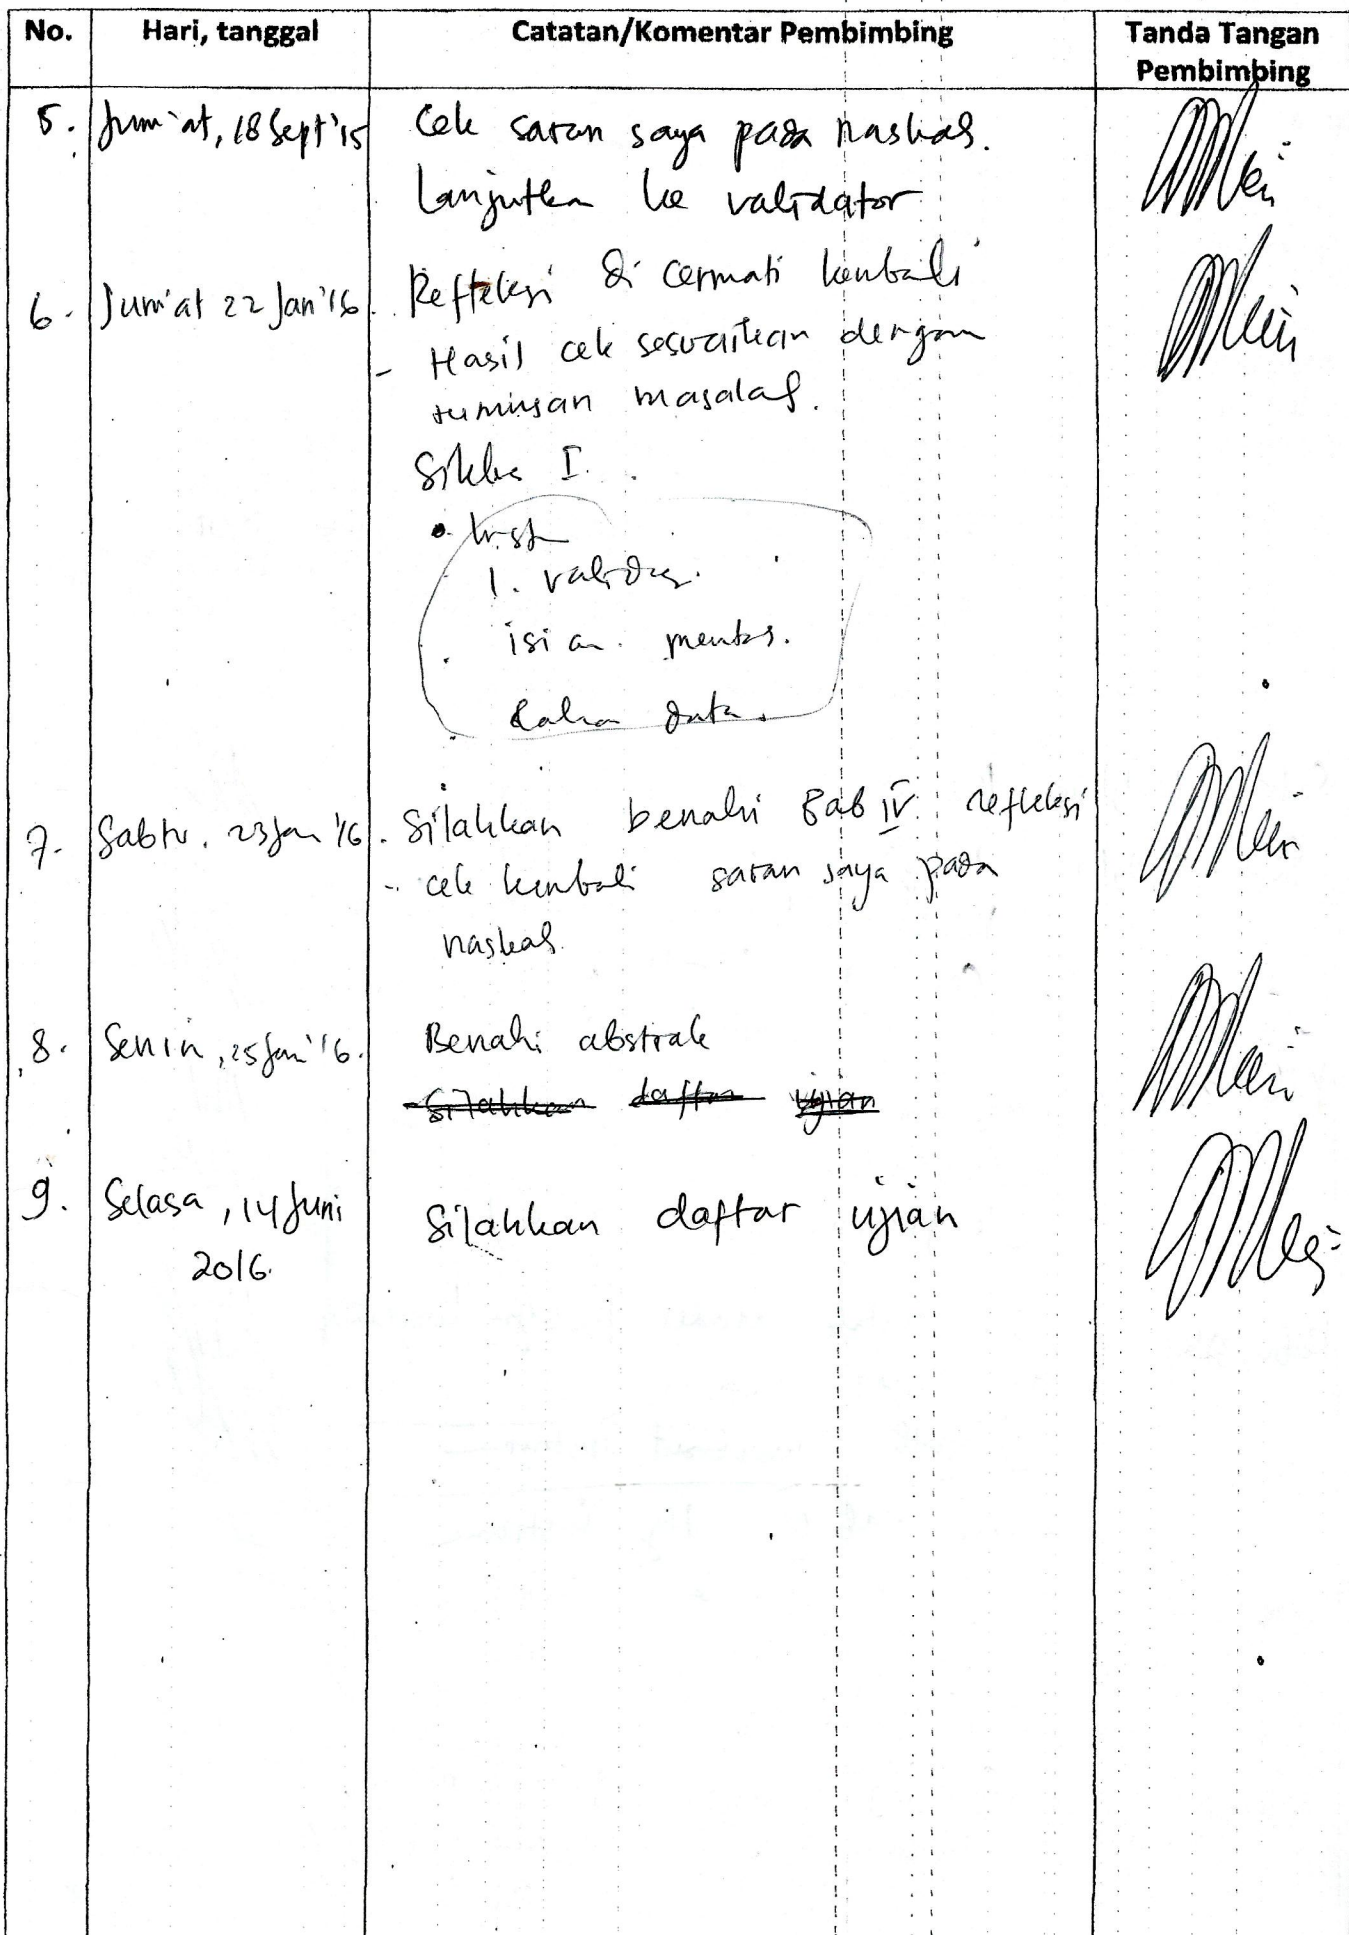 No. Hari, tanggal Catatan/Komentar Pembimbing Tanda Tangan Pembimbing
5. Jum'at, 18 Sept '15 Cek saran saya pada naskah.
Lanjutkan ke validator
6. Jum'at 22 Jan '16. Refleksi di cermati kembali
- Hasil cek sesuaikan dengan
rumusan masalah.
Siklus I.
1. validasi.
isian.
data.
7. Sabtu, 23 Jan '16. Silahkan benahi Bab IV refleksi
- cek kembali saran saya pada
naskah.
8. Senin, 25 Jan '16. Benahi abstrak
Silahkan daftar ujian
9. Selasa, 14 Juni Silahkan daftar ujian
2016.